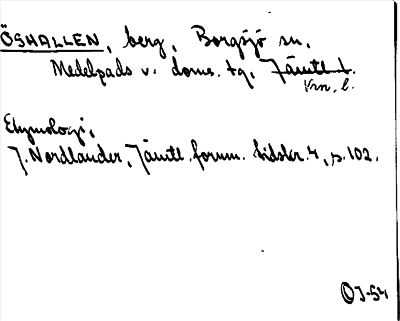 ÖSHALLEN, berg, Borgsjö sn,
Medelpads v. doms. tg, Jämtl. l.
Vrn. l.
Etymologi,
J. Nordlander, Jämtl. fornm. tidskr. 4, s. 102.
OJ-54